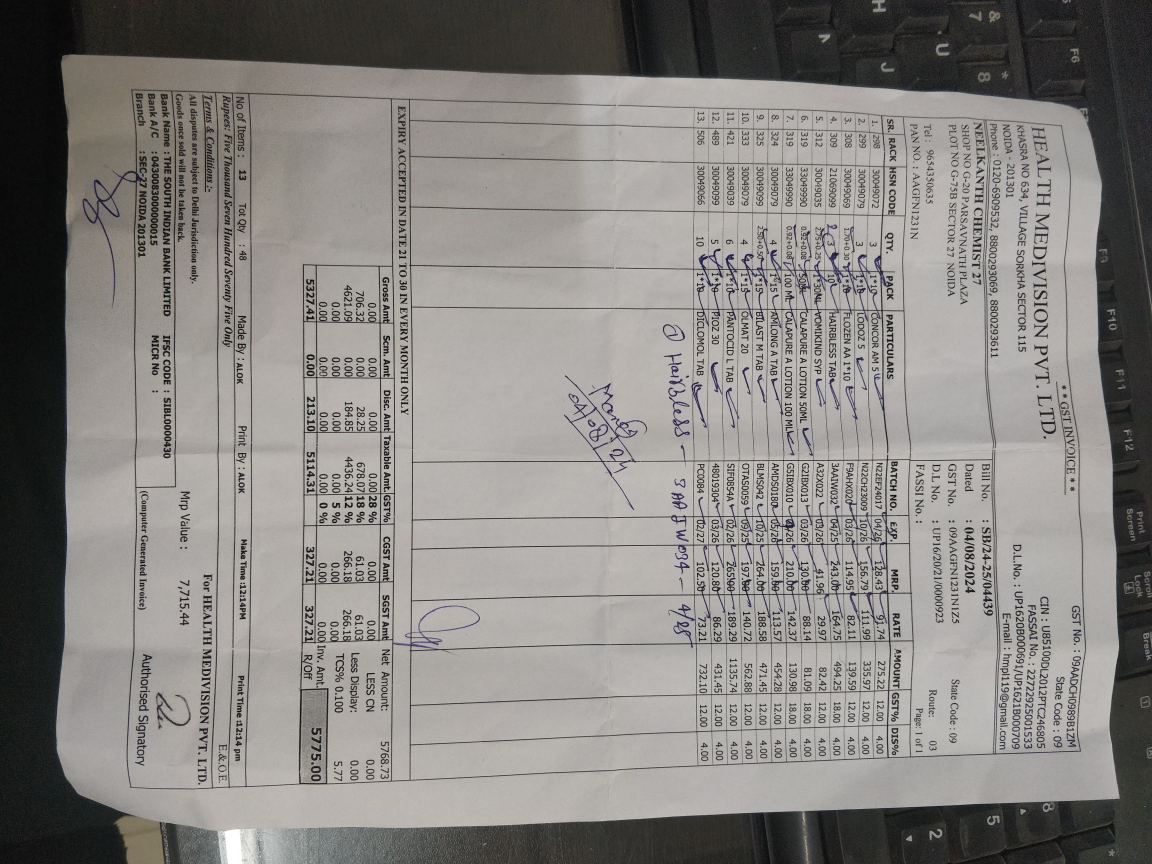 ** GST INVOICE **
HEALTH MEDIVISION PVT. LTD.
KHASRA NO 634, VILLAGE SORKHA SECTOR 115
NOIDA - 201301
Phone : 0120-6909532, 8800293069, 8800293611
GST No. : 09AADCH0989B1ZM
State Code : 09
CIN : U85100DL2012PTC246805
FASSAI No. : 22722925001533
D.L.No. : UP1620B000691/UP1621B000709
E-mail : hmpl119@gmail.com
NEELKANTH CHEMIST 27
SHOP NO G-20 PARSAVNATH PLAZA
PLOT NO G-75B SECTOR 27 NOIDA
Tel : 9654350635
PAN NO. : AAGFN1231N
Bill No. : SB/24-25/04439
Dated : 04/08/2024
GST No. : 09AAGFN1231N1Z5
D.L No. : UP16/20/21/0000923
FASSI No. :
State Code : 09
Route: 03
Page: 1 of 1
SR. RACK HSN CODE QTY. PACK PARTICULARS BATCH NO. EXP. MRP. RATE AMOUNT GST% DIS%
1. 298 30049072 3 1*10 CONCOR AM 5 N22EF24017 04/26 128.43 91.74 275.22 12.00 4.00
2. 299 30049079 3 1*10 LODOZ 5 N22CH23009 10/26 156.79 111.99 335.97 12.00 4.00
3. 308 30049069 1.70+0.30 1*10 FLOZEN AA 1*10 F9AHX020 03/26 114.95 82.11 139.59 12.00 4.00
4. 309 21069099 3 10 HAIRBLESS TAB 3AAIW032 04/25 243.00 164.75 494.25 18.00 4.00
5. 312 30049035 2.75+0.25 1*30ML VOMIKIND SYP A32X022 03/26 41.96 29.97 82.42 12.00 4.00
6. 319 33049990 0.92+0.08 50ML CALAPURE A LOTION 50ML G2IBX013 03/26 130.00 88.14 81.09 18.00 4.00
7. 319 33049990 0.92+0.08 100 ML CALAPURE A LOTION 100 ML GSIBX010 04/26 210.00 142.37 130.98 18.00 4.00
8. 324 30049079 4 1*15 AMLONG A TAB AMDS0180 05/26 159.00 113.57 454.28 12.00 4.00
9. 325 30049099 2.50+0.50 1*15 BILAST M TAB BLMS042 10/25 264.00 188.58 471.45 12.00 4.00
10. 333 30049079 4 1*15 OLMAT 20 OTAS0059 09/25 197.00 140.72 562.88 12.00 4.00
11. 421 30049039 6 1*10 PANTOCID L TAB SIF0854A 02/26 265.00 189.29 1135.74 12.00 4.00
12. 489 30049099 5 1*10 PIOZ 30 48019304 03/26 120.80 86.29 431.45 12.00 4.00
13. 506 30049066 10 1*10 DICLOMOL TAB PC0084 02/27 102.50 73.21 732.10 12.00 4.00
① Hairbless - 3AAJW034 - 4/25
04/08/24
EXPIRY ACCEPTED IN DATE 21 TO 30 IN EVERY MONTH ONLY
Gross Amt Scm. Amt Disc. Amt Taxable Amt. GST% CGST Amt SGST Amt
0.00 0.00 0.00 0.00 28 % 0.00 0.00
706.32 0.00 28.25 678.07 18 % 61.03 61.03
4621.09 0.00 184.85 4436.24 12 % 266.18 266.18
0.00 0.00 0.00 0.00 5 % 0.00 0.00
0.00 0.00 0.00 0.00 0 % 0.00 0.00
5327.41 0.00 213.10 5114.31 327.21 327.21
Net Amount: 5768.73
LESS CN 0.00
Less Display: 0.00
TCS% 0.100 5.77
Inv. Amt. 5775.00
R/Off
No of Items : 13 Tot Qty : 48 Made By : ALOK Print By : ALOK Make Time :12:14PM Print Time :12:14 pm
Rupees: Five Thousand Seven Hundred Seventy Five Only
E.&.O.E.
Terms & Conditions :-
All disputes are subject to Delhi Jurisdiction only.
Goods once sold will not be taken back.
Mrp Value : 7,715.44
For HEALTH MEDIVISION PVT. LTD.
Bank Name : THE SOUTH INDIAN BANK LIMITED IFSC CODE : SIBL0000430
Bank A/C : 0430083000000015 MICR No :
Branch : SEC-27 NOIDA 201301
(Computer Generated Invoice)
Authorised Signatory